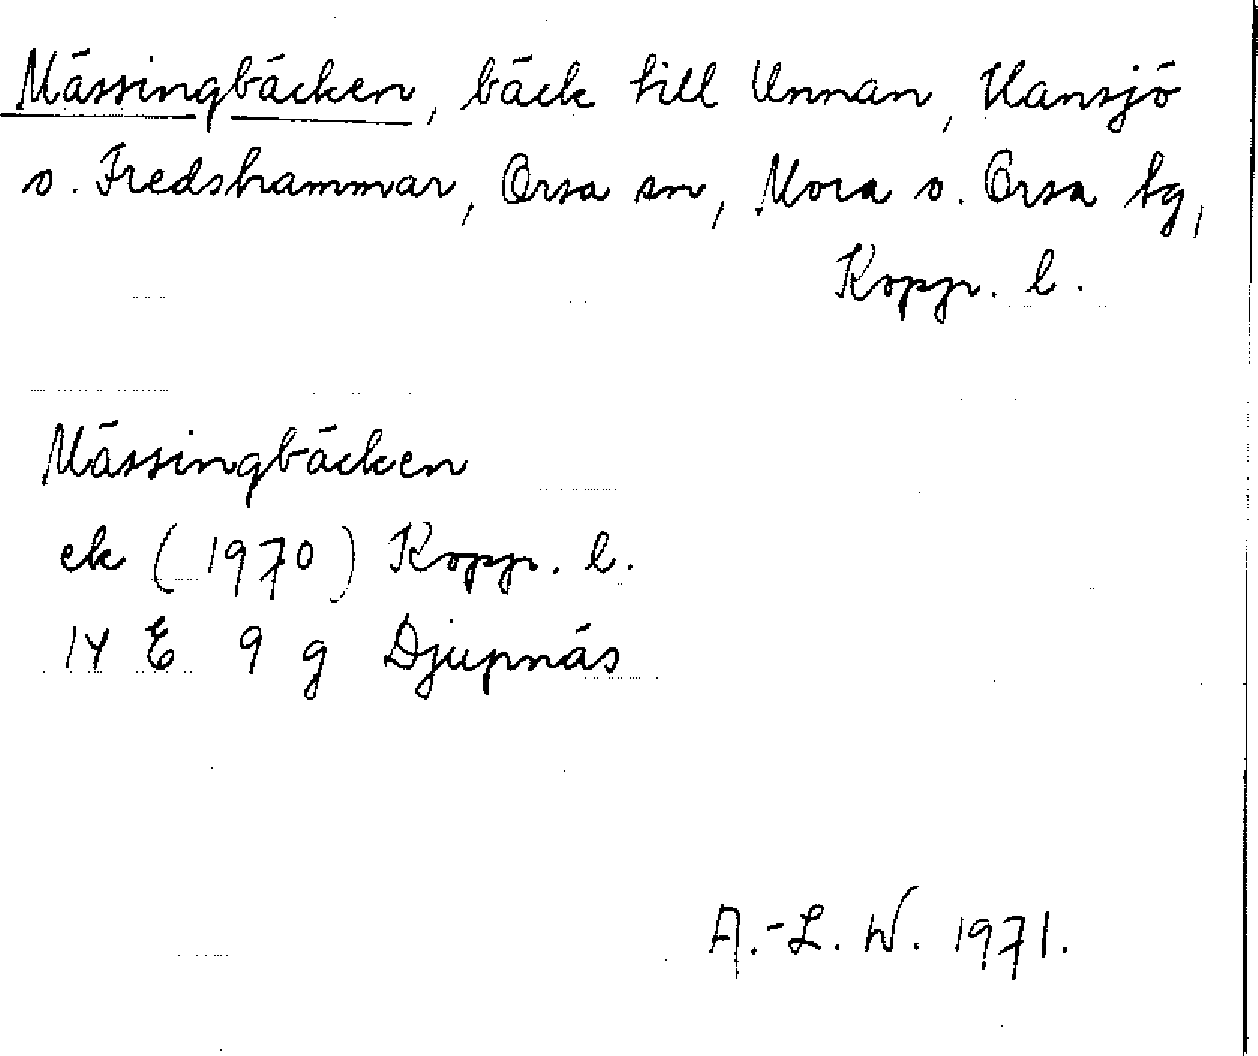 Mässingbäcken, bäck till Unnan, Hansjö
o. Fredshammar, Orsa sn, Mora o. Orsa tg,
Kopp. l.
Mässingbäcken
ek (1970) Kopp. l.
14 E 9 g Djupnäs
A.-L. W. 1971.